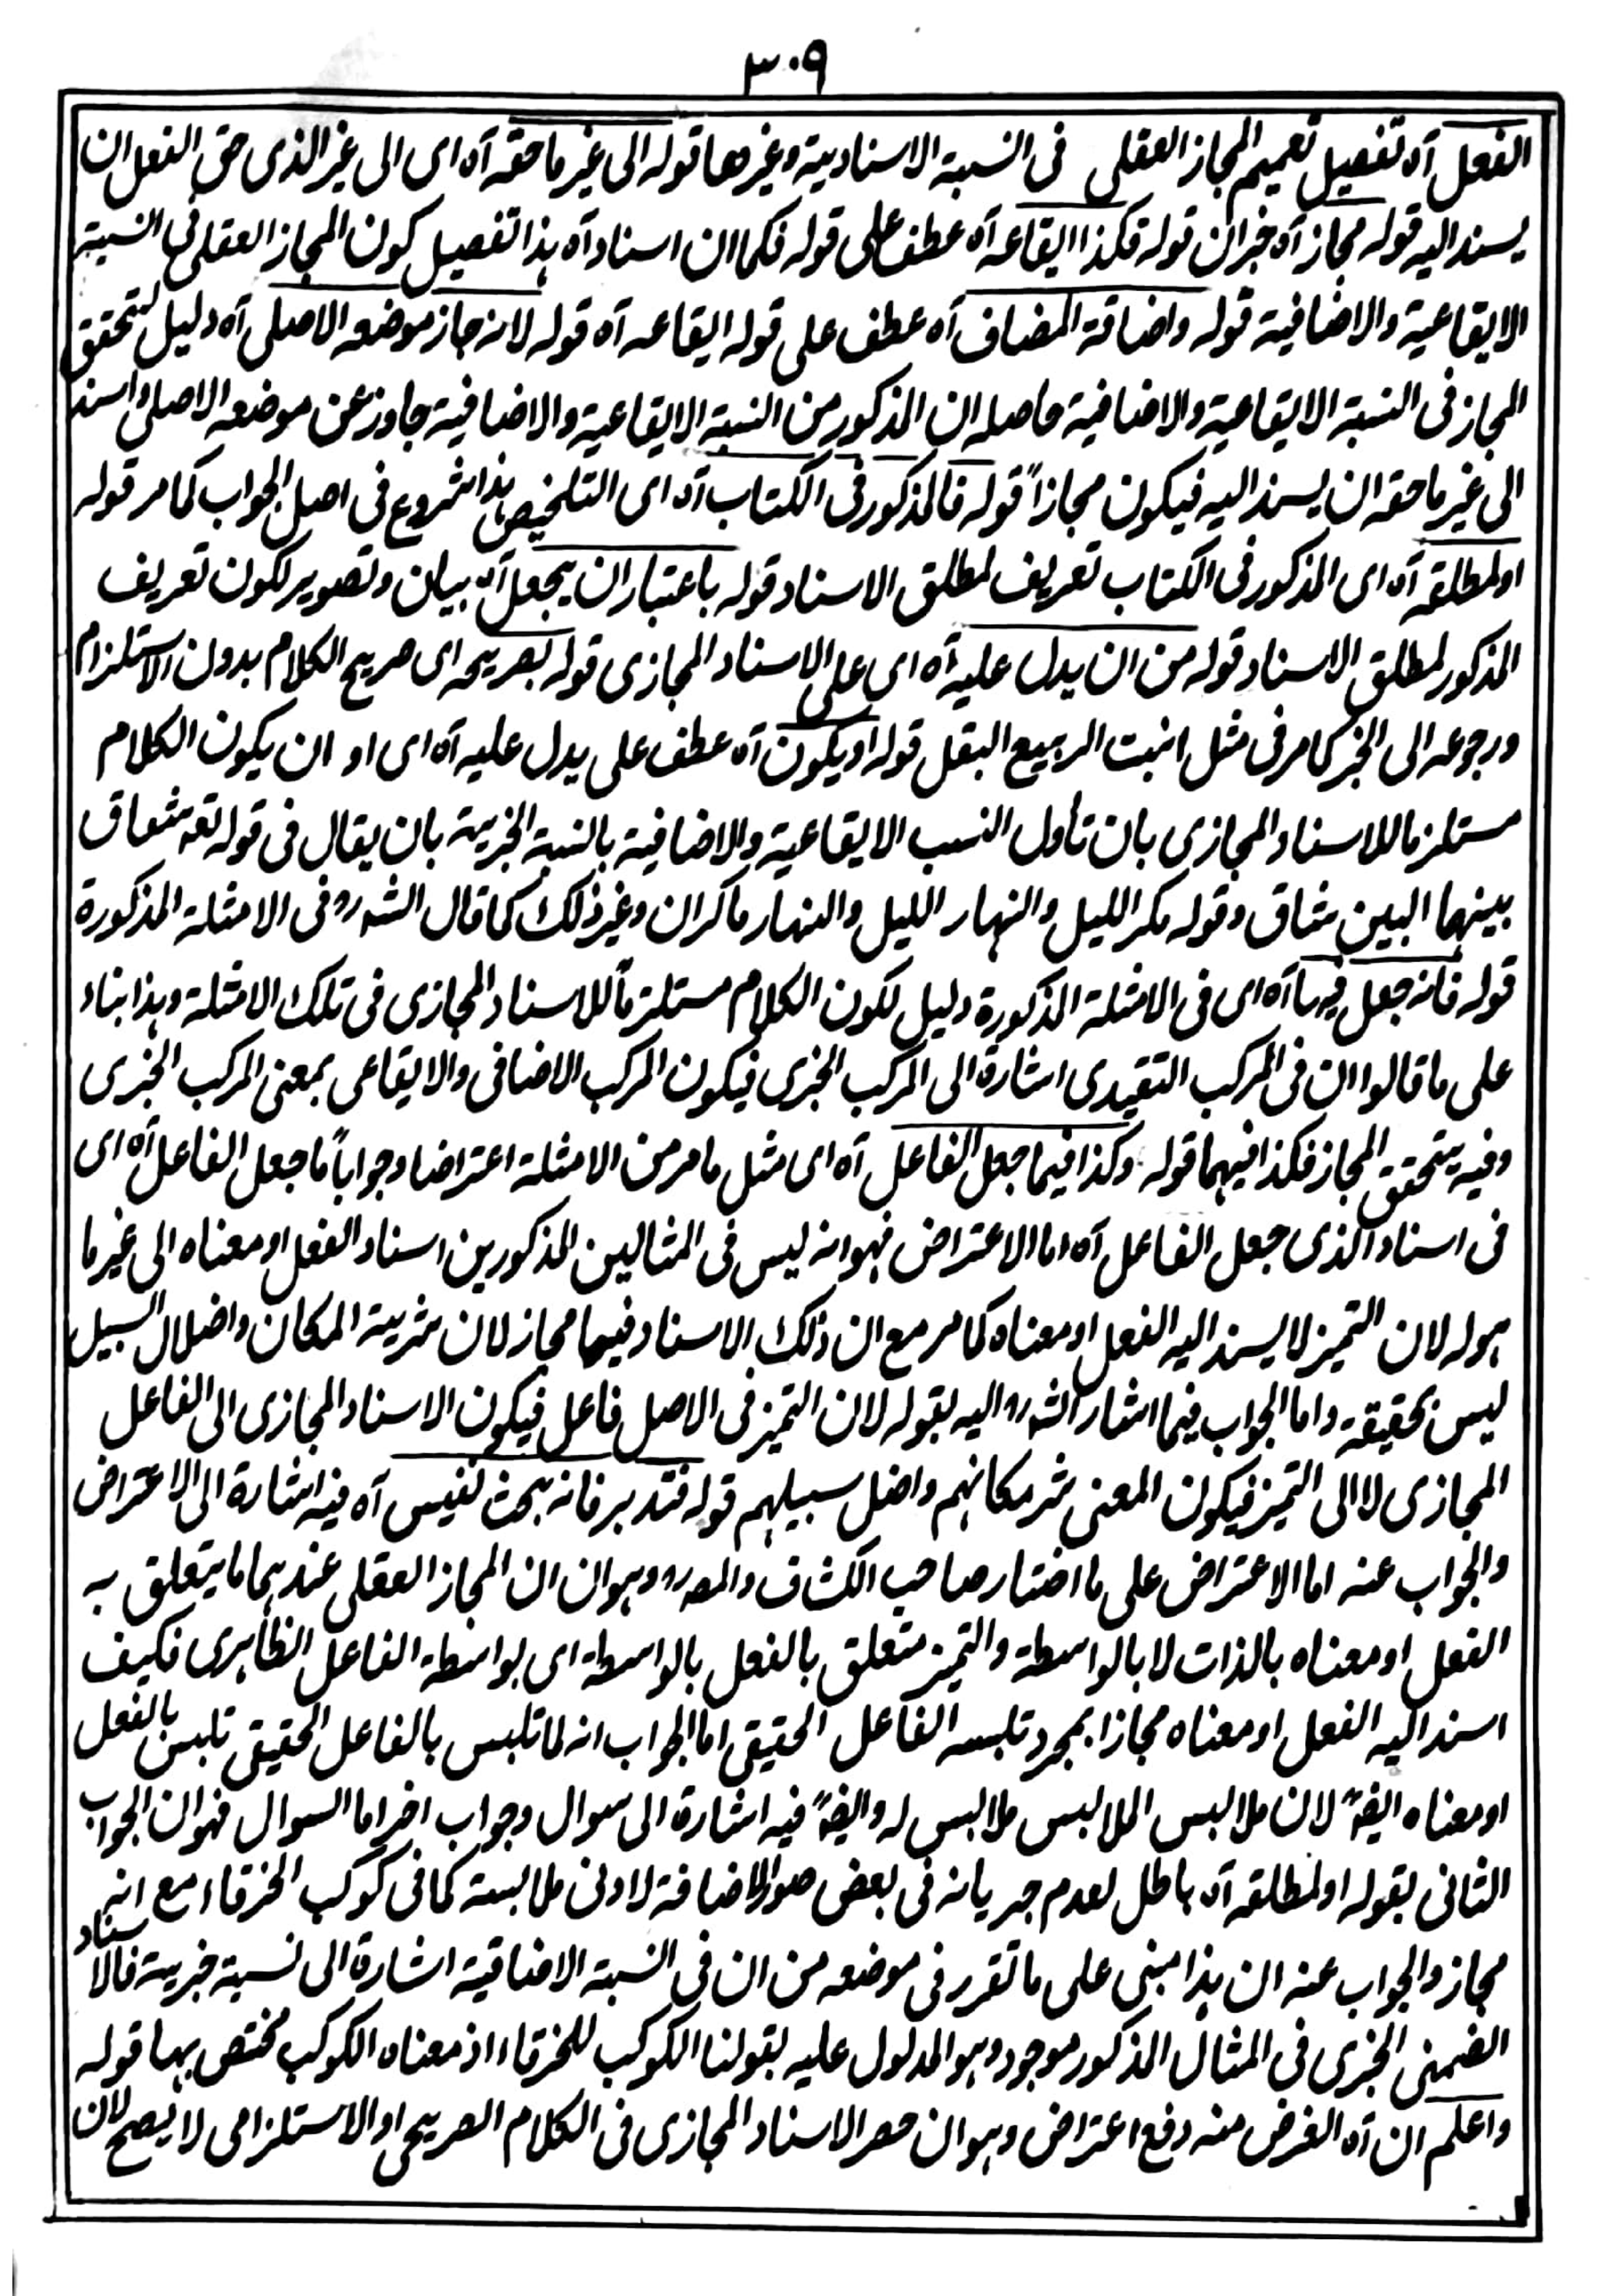 ٣٠٩
الفعل آه تفصيل تعميم المجاز العقلى فى النسبة الاسنادية وغيرها قوله الى غير ما حقه آه اى الى غير الذى حق الفعل ان
يسند اليه قوله مجاز آه خبر ان قوله فكذا ايقاعه آه عطف على قوله فكما ان اسناد آه هذا تفصيل كون المجاز العقلى فى النسبة
الايقاعية والاضافية قوله واضافة المضاف آه عطف على قوله ايقاعه آه قوله لانه جاز موضعه الاصلى آه دليل لتحقق
المجاز فى النسبة الايقاعية والاضافية حاصله ان المذكور من النسبة الايقاعية والاضافية جاوز عن موضعه الاصلى واسند
الى غير ما حقه ان يسند اليه فيكون مجازاً قوله فالمذكور فى الكتاب آه اى التلخيص هذا شروع فى اصل الجواب كما مر قوله
او لمطلقه آه اى المذكور فى الكتاب تعريف لمطلق الاسناد قوله باعتبار ان يجعل آه بيان وتصوير لكون تعريف
المذكور لمطلق الاسناد قوله من ان يدل عليه آه اى على الاسناد المجازى قوله بصريحه اى صريح الكلام بدون الاستلزام
ورجوعه الى الخبر كما مر فى مثل انبت الربيع البقل قوله او يكون آه عطف على يدل عليه آه اى او ان يكون الكلام
مستلزما للاسناد المجازى بان تأول النسب الايقاعية والاضافية بالنسبة الخبرية بان يقال فى قوله تعه شقاق
بينهما البين شاق وقوله مكر الليل والنهار الليل والنهار ماكران وغير ذلك كما قال الشه ره فى الامثلة المذكورة
قوله فانه جعل فيها آه اى فى الامثلة المذكورة دليل لكون الكلام مستلزماً للاسناد المجازى فى تلك الامثلة وهذا بناء
على ما قالوا ان فى المركب التقيدى اشارة الى المركب الخبرى فيكون المركب الاضافى والايقاعى بمعنى المركب الخبرى
وفيه يتحقق المجاز فكذا فيهما قوله وكذا فيما جعل الفاعل آه اى مثل ما مر من الامثلة اعتراضا وجواباً ما جعل الفاعل آه اى
فى اسناد الذى جعل الفاعل آه اما الاعتراض فهو انه ليس فى المثالين المذكورين اسناد الفعل او معناه الى غير ما
هو له لان التميز لا يسند اليه الفعل او معناه كما مر مع ان ذلك الاسناد فيهما مجاز لان شرية المكان واضلال السبيل
ليس بحقيقة واما الجواب فيما اشار الشه ره اليه بقوله لان التميز فى الاصل فاعل فيكون الاسناد المجازى الى الفاعل
المجازى لا الى التميز فيكون المعنى شر مكانهم واضل سبيلهم قوله فتدبر فانه بحث نفيس آه فيه اشارة الى الاعتراض
والجواب عنه اما الاعتراض على ما اختار صاحب الكشاف والمصه ره وهو ان ان المجاز العقلى عندهما ما يتعلق به
الفعل او معناه بالذات لا بالواسطة والتميز متعلق بالفعل بالواسطة اى بواسطة الفاعل الظاهرى فكيف
اسند اليه الفعل او معناه مجازا بمجرد تلبسه الفاعل الحقيقى اما الجواب انه لما تلبس بالفاعل الحقيقى تلبس بالفعل
او معناه ايضهً لان ملابس الملابس ملابس له وايضهً فيه اشارة الى سوال وجواب اخر اما السوال فهو ان الجواب
الثانى بقوله او لمطلقه آه باطل لعدم جريانه فى بعض صور الاضافة لادنى ملابسة كما فى كوكب الخرقاء مع انه
مجاز والجواب عنه ان هذا مبنى على ما تقرر فى موضعه من ان فى النسبة الاضافية اشارة الى نسبة خبرية فالاسناد
الضمنى الخبرى فى المثال المذكور موجود وهو المدلول عليه بقولنا الكوكب للخرقاء اذ معناه الكوكب مختص بها قوله
واعلم ان آه الغرض منه دفع اعتراض وهو ان حصر الاسناد المجازى فى الكلام الصريحى او الاستلزامى لا يصح لان